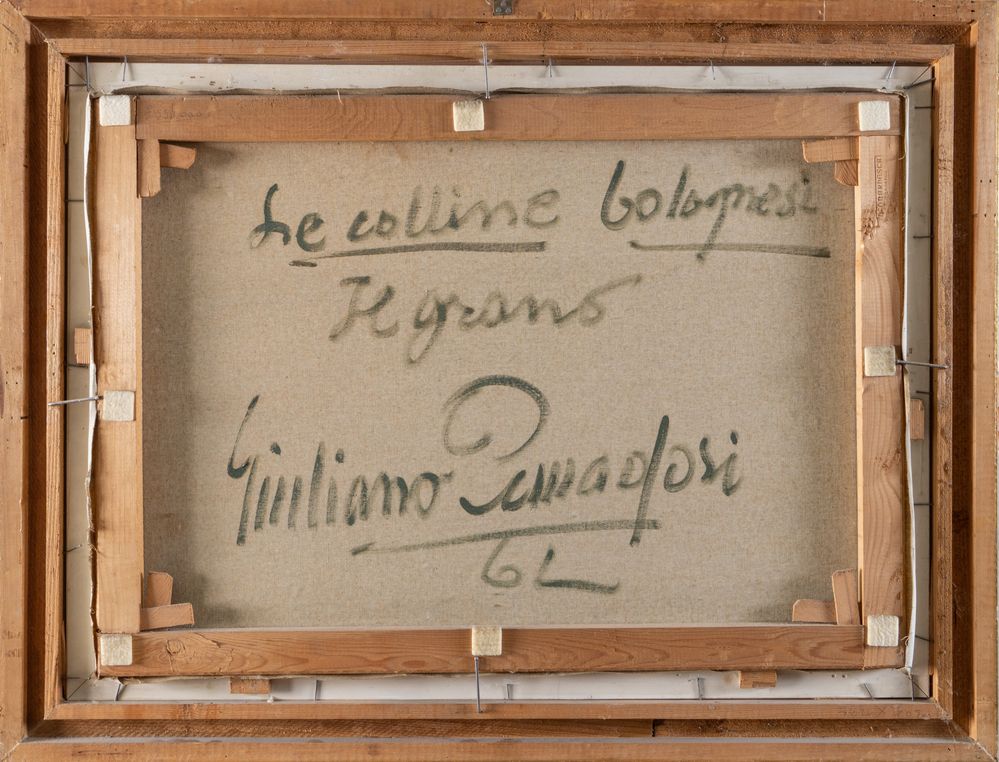 Le colline bolognesi
Il grano
Giuliano Pancaldi
62